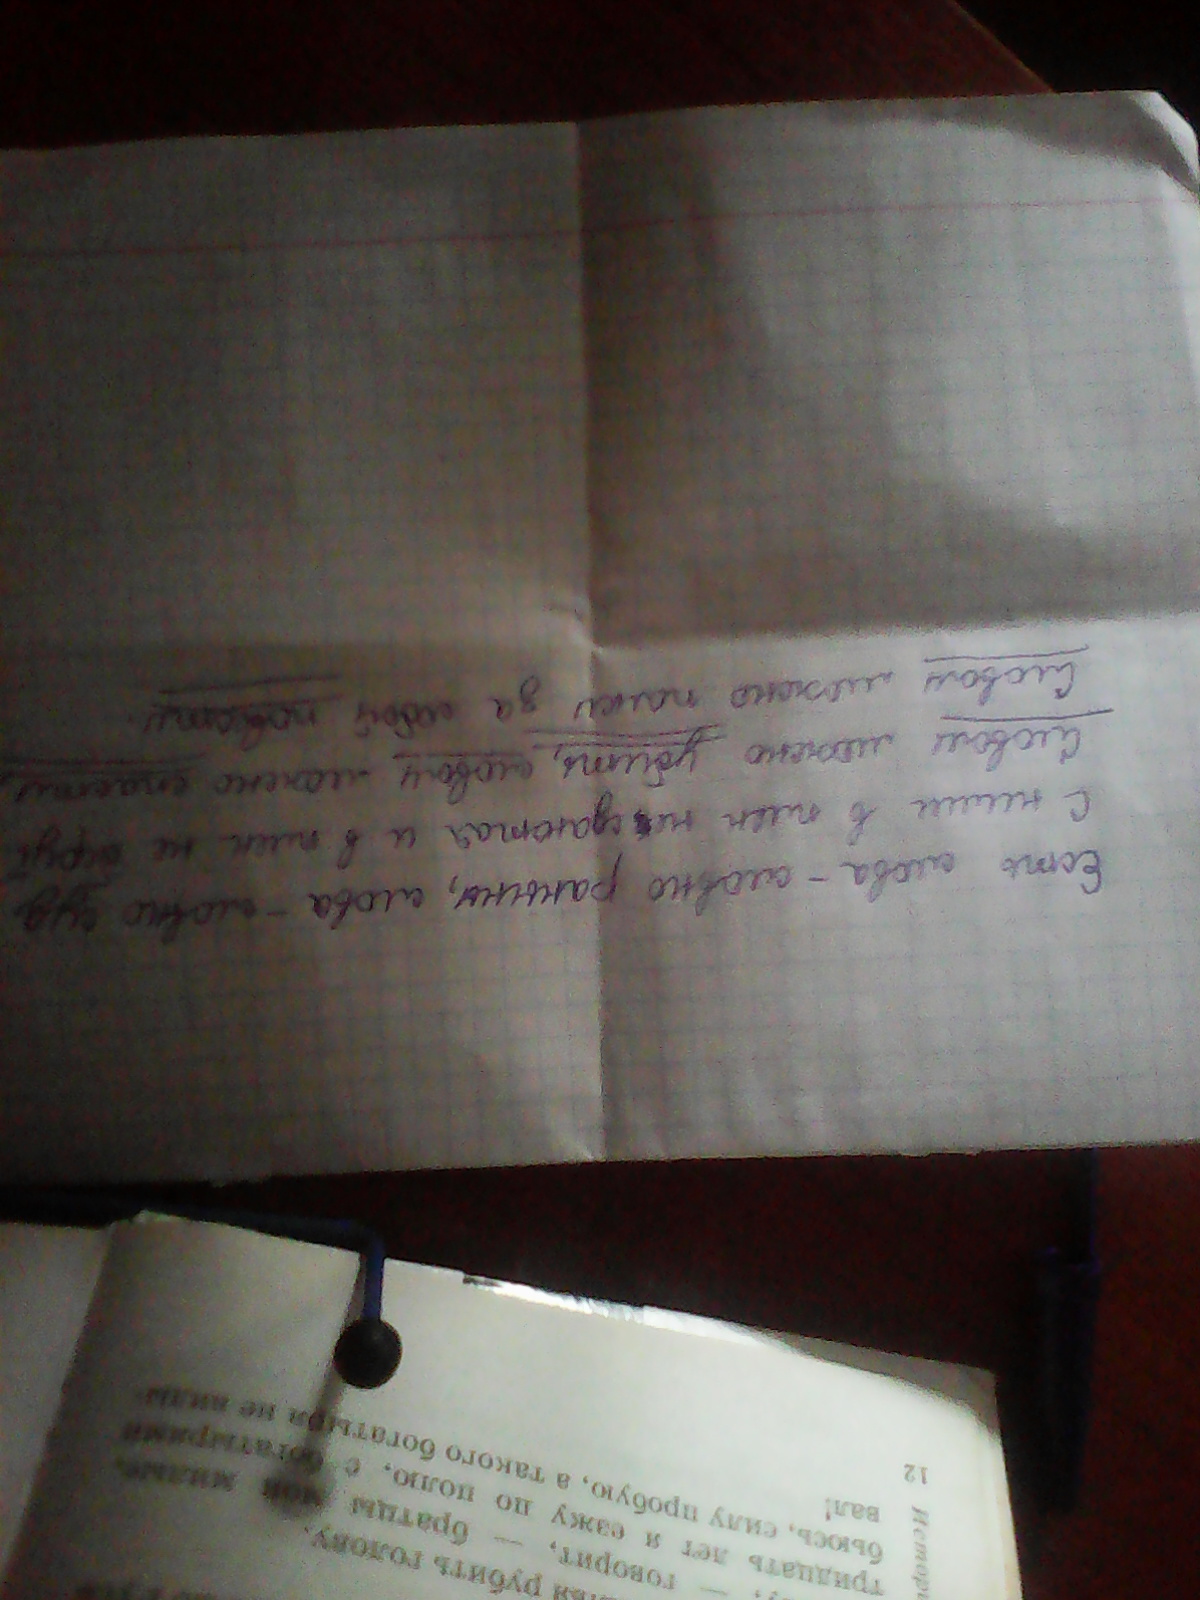 Есть слова - словно раны, слова - словно суд
С ними в плен не сдаются и в плен не берут
Словом можно убить, словом можно спасти,
Словом можно полки за собой повести.
рубить голову.
— говорит, — братцы мои милые,
тридцать лет я езжу по полю, с богатырями
бьюсь, силу пробую, а такого богатыря не виды-
вал!
12